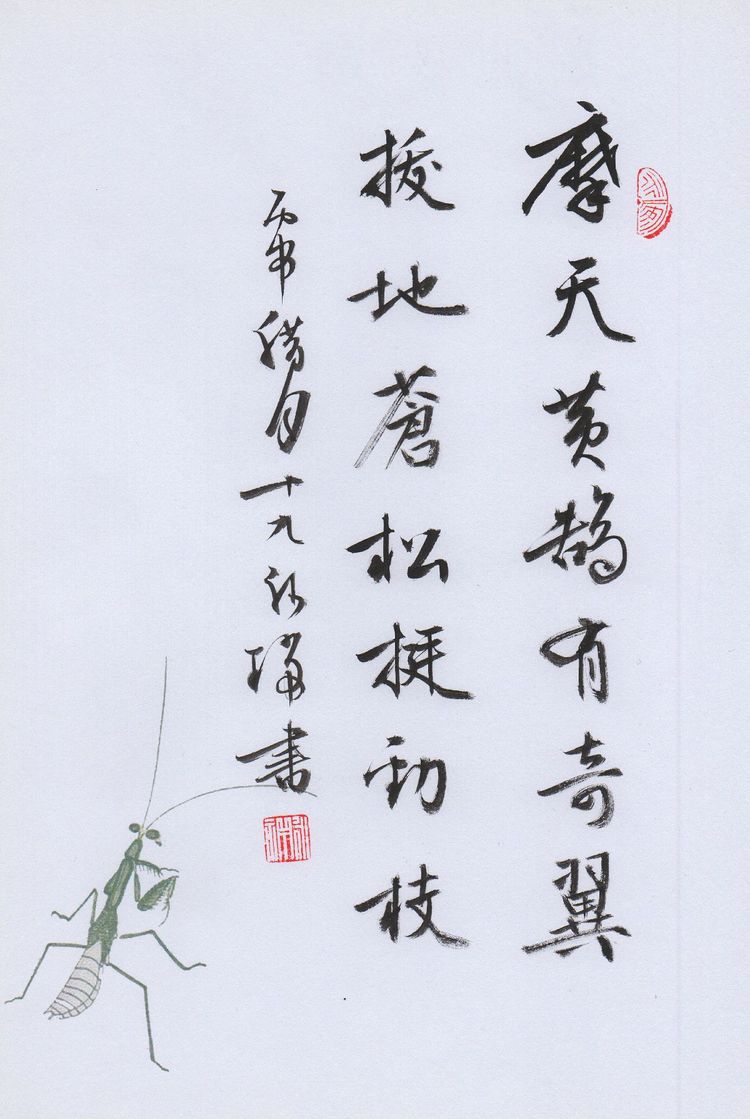 摩天黄鹄有奇翼
拔地蒼松挺劲枝
丙申腊月十九書